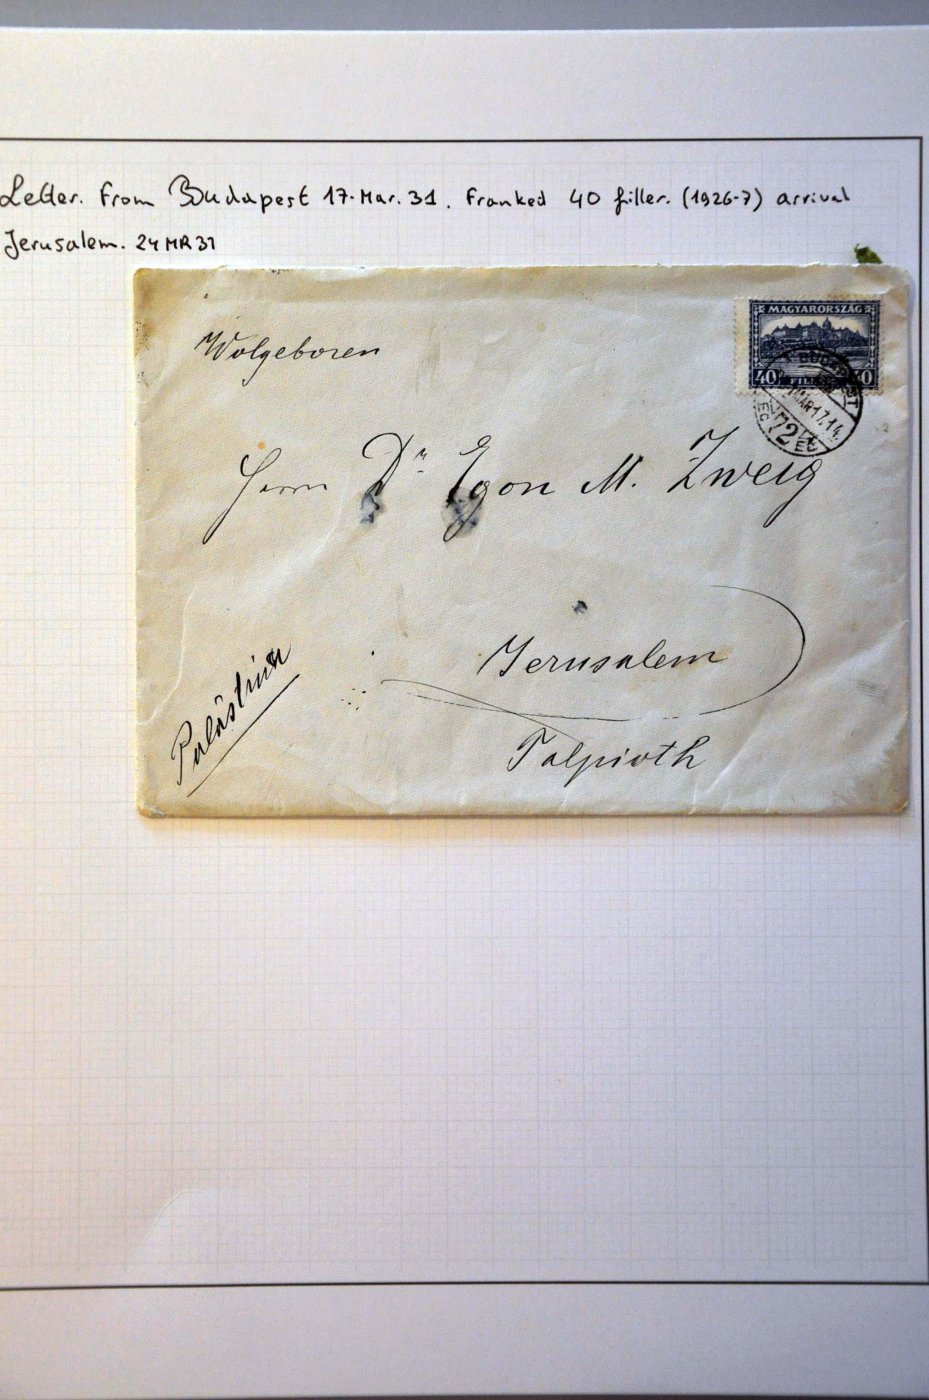 Letter. From Budapest 17-Mar. 31. Franked 40 filler. (1926-7) arrival
Jerusalem. 24 MR 31
MAGYARORSZÁG
40 FILLÉR 40
BUDAPEST
MAR 17. 14
72
Wolgeboren
Herrn Dr Egon M. Zweig
Jerusalem
Talpioth
Palästina